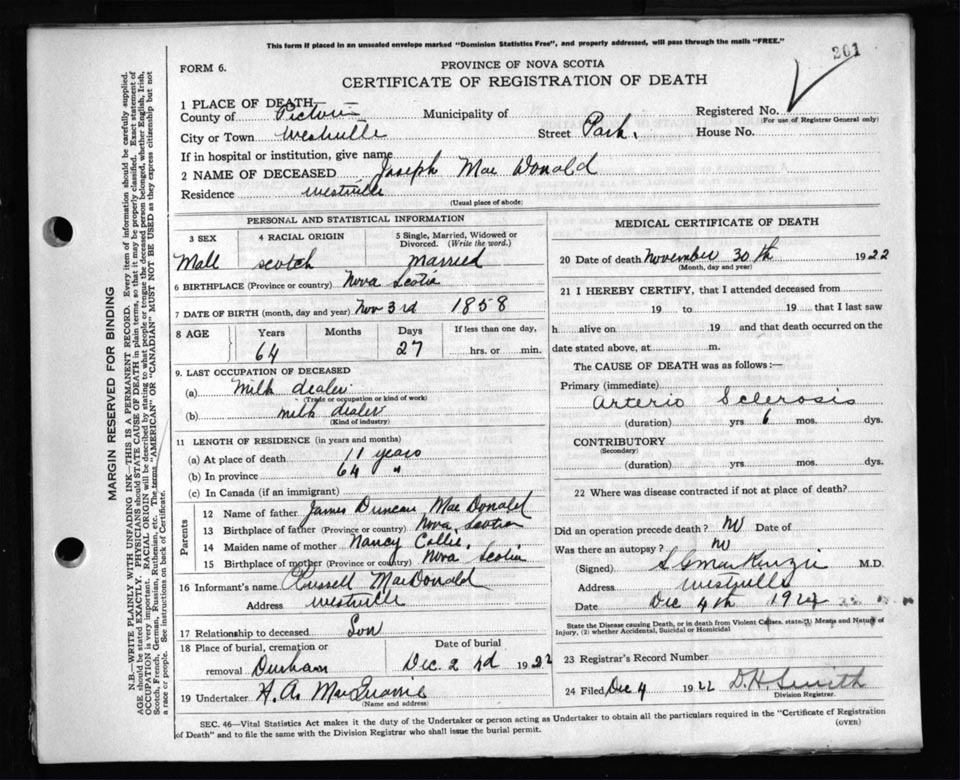 This form if placed in an unsealed envelope marked "Dominion Statistics Free", and properly addressed, will pass through the mails "FREE."
201
FORM 6.
PROVINCE OF NOVA SCOTIA
CERTIFICATE OF REGISTRATION OF DEATH
1 PLACE OF DEATH
County of Pictou Municipality of Registered No.
(For use of Registrar General only)
City or Town Westville Street Park. House No.
If in hospital or institution, give name
2 NAME OF DECEASED Joseph Mac Donald
Residence Westville
(Usual place of abode)
MARGIN RESERVED FOR BINDING
N.B.—WRITE PLAINLY WITH UNFADING INK—THIS IS A PERMANENT RECORD. Every item of information should be carefully supplied.
AGE should be stated EXACTLY. PHYSICIANS should STATE CAUSE OF DEATH in plain terms, so that it may be properly classified. Exact statement of
OCCUPATION is very important. RACIAL ORIGIN will be described by stating to what people or tongue the deceased person belonged, whether English, Irish,
Scotch, French, German, Russian, Ruthenian, etc. The terms "AMERICAN" OR "CANADIAN" MUST NOT BE USED as they express citizenship but not
a race or people. See instructions on back of Certificate.
PERSONAL AND STATISTICAL INFORMATION
3 SEX 4 RACIAL ORIGIN 5 Single, Married, Widowed or
Divorced. (Write the word.)
Mall scotch married
6 BIRTHPLACE (Province or country) Nova Scotia
7 DATE OF BIRTH (month, day and year) Nov 3rd 1858
8 AGE Years Months Days If less than one day,
64 27 hrs. or min.
9. LAST OCCUPATION OF DECEASED
(a) Milk dealer
(Trade or occupation or kind of work)
(b) milk dealer
(Kind of industry)
11 LENGTH OF RESIDENCE (in years and months)
(a) At place of death 11 years
(b) In province 64 "
(c) In Canada (if an immigrant)
Parents
12 Name of father James Duncan Mac Donald
13 Birthplace of father (Province or country) Nova Scotia
14 Maiden name of mother Nancy Collie.
15 Birthplace of mother (Province or country) Nova Scotia
16 Informant's name Russell MacDonald
Address Westville
17 Relationship to deceased Son
18 Place of burial, cremation or Date of burial
removal Durham Dec 2nd 1922
19 Undertaker H. A. MacQuarrie
(Name and address)
MEDICAL CERTIFICATE OF DEATH
20 Date of death November 30th 1922
(Month, day and year)
21 I HEREBY CERTIFY, that I attended deceased from
19 to 19 that I last saw
h alive on 19 and that death occurred on the
date stated above, at m.
The CAUSE OF DEATH was as follows:—
Primary (immediate)
Arterio Sclerosis
(duration) yrs 6 mos. dys.
CONTRIBUTORY
(Secondary)
(duration) yrs. mos. dys.
22 Where was disease contracted if not at place of death?
Did an operation precede death? No Date of
Was there an autopsy? No
(Signed) S G MacKenzie M.D.
Address Westville
Date Dec 4th 1922
State the Disease causing Death, or in death from Violent Causes, state (1) Means and Nature of
Injury, (2) whether Accidental, Suicidal or Homicidal
23 Registrar's Record Number
24 Filed Dec 4 1922 D. H. Smith
Division Registrar.
SEC. 46—Vital Statistics Act makes it the duty of the Undertaker or person acting as Undertaker to obtain all the particulars required in the "Certificate of Registration
of Death" and to file the same with the Division Registrar who shall issue the burial permit.
(OVER)